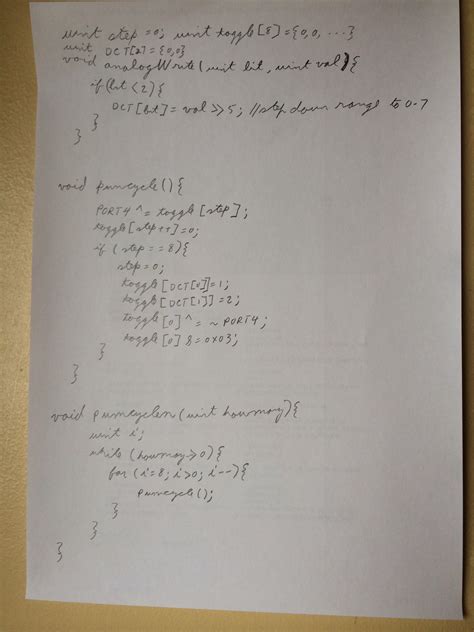 uint step =0; uint toggle[8]={0,0, ...}
uint DCT[2]={0,0}
void analogWrite(uint bit, uint val){
if(bit<2){
DCT[bit]= val>>5; //step down range to 0-7
}
}
void pwmcycle(){
PORT4 ^= toggle[step];
toggle[step++]=0;
if (step==8){
step=0;
toggle[DCT[0]]=1;
toggle[DCT[1]]=2;
toggle[0]^=~PORT4;
toggle[0] &=0x03;
}
}
void pwmcyclen(uint howmany){
uint i;
while (howmany>0){
for (i=8; i>0; i--){
pwmcycle();
}
}
}